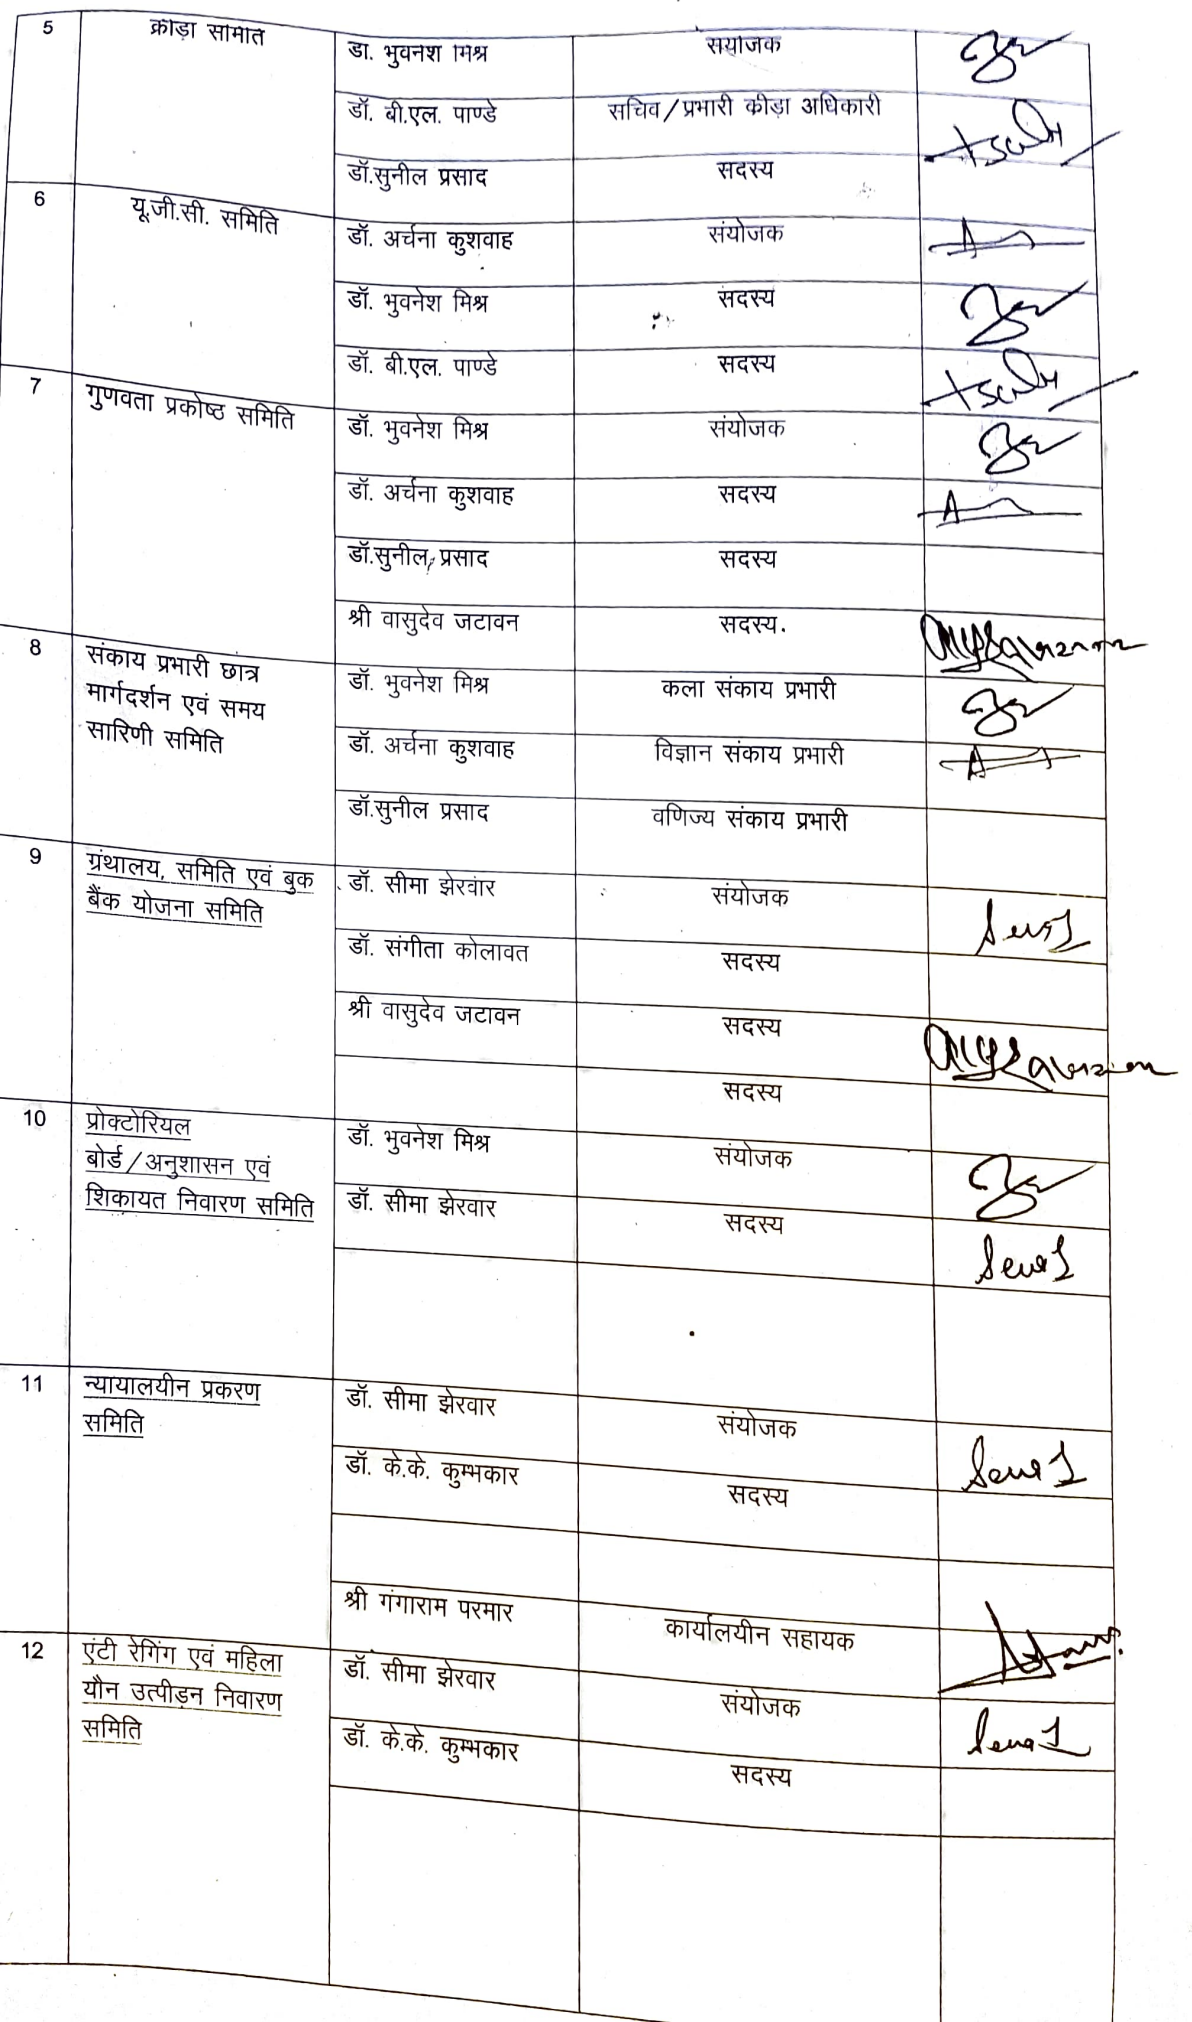 5 क्रीड़ा समिति डॉ. भुवनेश मिश्र संयोजक
डॉ. बी.एल. पाण्डे सचिव/प्रभारी कीड़ा अधिकारी
डॉ.सुनील प्रसाद सदस्य
6 यू.जी.सी. समिति डॉ. अर्चना कुशवाह संयोजक
डॉ. भुवनेश मिश्र सदस्य
डॉ. बी.एल. पाण्डे सदस्य
7 गुणवता प्रकोष्ठ समिति डॉ. भुवनेश मिश्र संयोजक
डॉ. अर्चना कुशवाह सदस्य
डॉ.सुनील प्रसाद सदस्य
श्री वासुदेव जटावन सदस्य.
8 संकाय प्रभारी छात्र
मार्गदर्शन एवं समय
सारिणी समिति
डॉ. भुवनेश मिश्र कला संकाय प्रभारी
डॉ. अर्चना कुशवाह विज्ञान संकाय प्रभारी
डॉ.सुनील प्रसाद वणिज्य संकाय प्रभारी
9 ग्रंथालय, समिति एवं बुक
बैंक योजना समिति
डॉ. सीमा झेरवार संयोजक
डॉ. संगीता कोलावत सदस्य
श्री वासुदेव जटावन सदस्य
सदस्य
10 प्रोक्टोरियल
बोर्ड/अनुशासन एवं
शिकायत निवारण समिति
डॉ. भुवनेश मिश्र संयोजक
डॉ. सीमा झेरवार सदस्य
11 न्यायालयीन प्रकरण
समिति
डॉ. सीमा झेरवार संयोजक
डॉ. के.के. कुम्भकार सदस्य
श्री गंगाराम परमार कार्यालयीन सहायक
12 एंटी रेगिंग एवं महिला
यौन उत्पीड़न निवारण
समिति
डॉ. सीमा झेरवार संयोजक
डॉ. के.के. कुम्भकार सदस्य